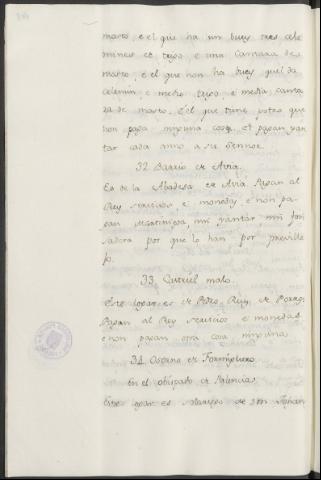 marzo, e el que ha un buey tres cele
mines de trigo e una cantara de
mosto, e el que non ha buey quel da
celemin e medio trigo e media canta
ra de mosto. E el que tiene potro que
non paga ninguna cosa, et pagan yan
tar cada anno a su Sennor.
32. Barrio de Avia.
Es de la Abadesa de Avia. Pagan al
Rey servicios e monedas, e non pa
gan martiniega, nin yantar nin fon
sadera por que lo han por preville
jo.
33. Cutriel malo.
Este logar es de Pedro Ruy, de
Pagan al Rey servicios e monedas
e non pagan otra cosa ninguna
34. Osorno
en el obispado de Palencia
Este logar es de Sm